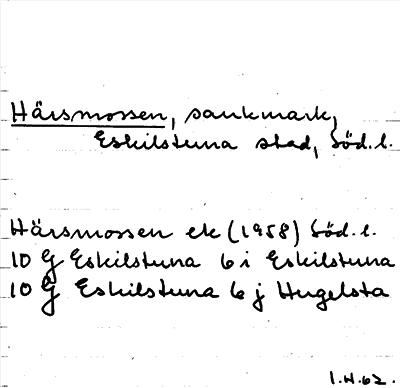 Härsmossen, sankmark,
Eskilstuna stad, Söd.l.
Härsmossen ek (1958) Söd.l.
10 G Eskilstuna 6 i Eskilstuna
10 G Eskilstuna 6 j Hugelsta
I.H.62.